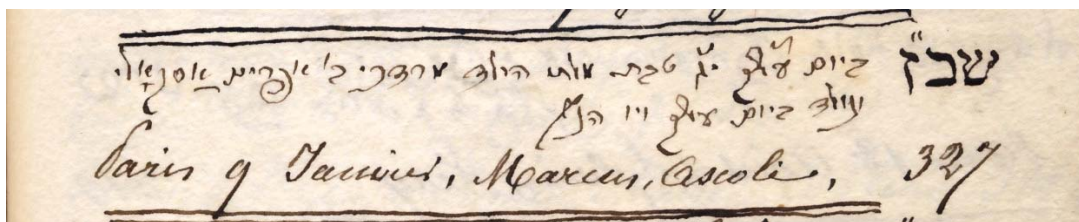 שכ״ז ביום עש״ק י״ג טבת מלתי הילד מרדכי ב' אפרים אסקאלי
נולד ביום עש״ק ויו הנ״ל
Paris 9 Janvier, Marcus, Ascoli, 327